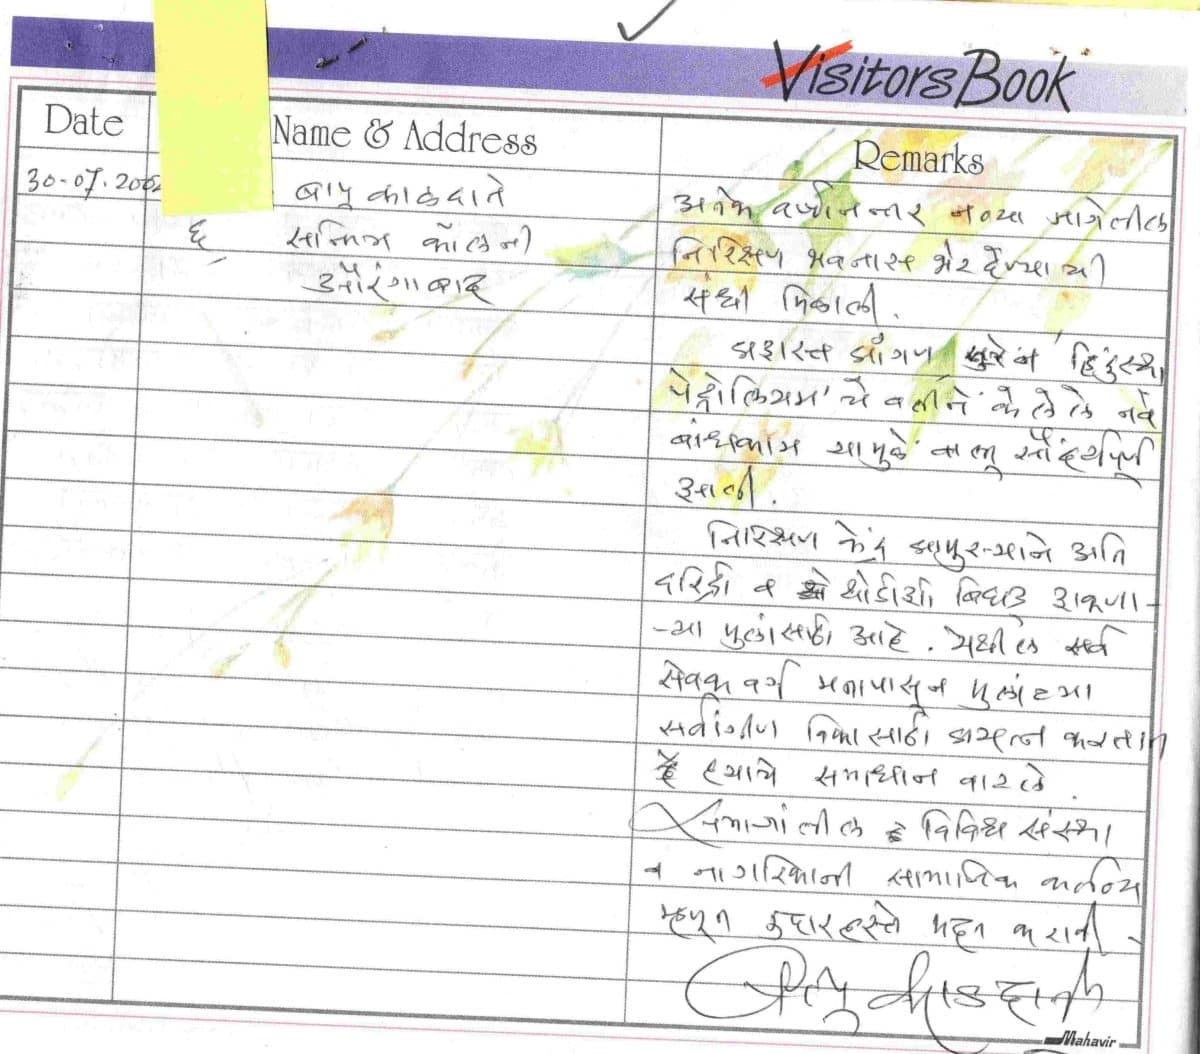 Visitors Book
Date
Name & Address
Remarks
30-07-2002
बापु काळदाते
६
समिश्र कॉलनी
औरंगाबाद
अनेक वर्षानन्तर नव्या जागेतील
निरिक्षण भवनास भेट देण्याची
संधी मिळाली.
प्रशस्त प्रांगण हिंदुस्थान
पेट्रोलियम' चे वतीने केलेले नवे
बांधकाम यामुळे वास्तू सौंदर्यपूर्ण
झाली.
निरिक्षण केंद्र अति
दरिद्री व थोडीशी बिघाड
-च्या मुलांसाठी आहे. येथील सर्व
सेवक वर्ग मनापासून मुलांच्या
सर्वांगीण विकासाठी प्रयत्न करतात
ह्याचे समाधान वाटले.
समाजातील विविध संस्था
व नागरिकांनी सामाजिक कर्तव्य
म्हणून उदारहस्ते मदत करावी
बापु काळदाते
Mahavir